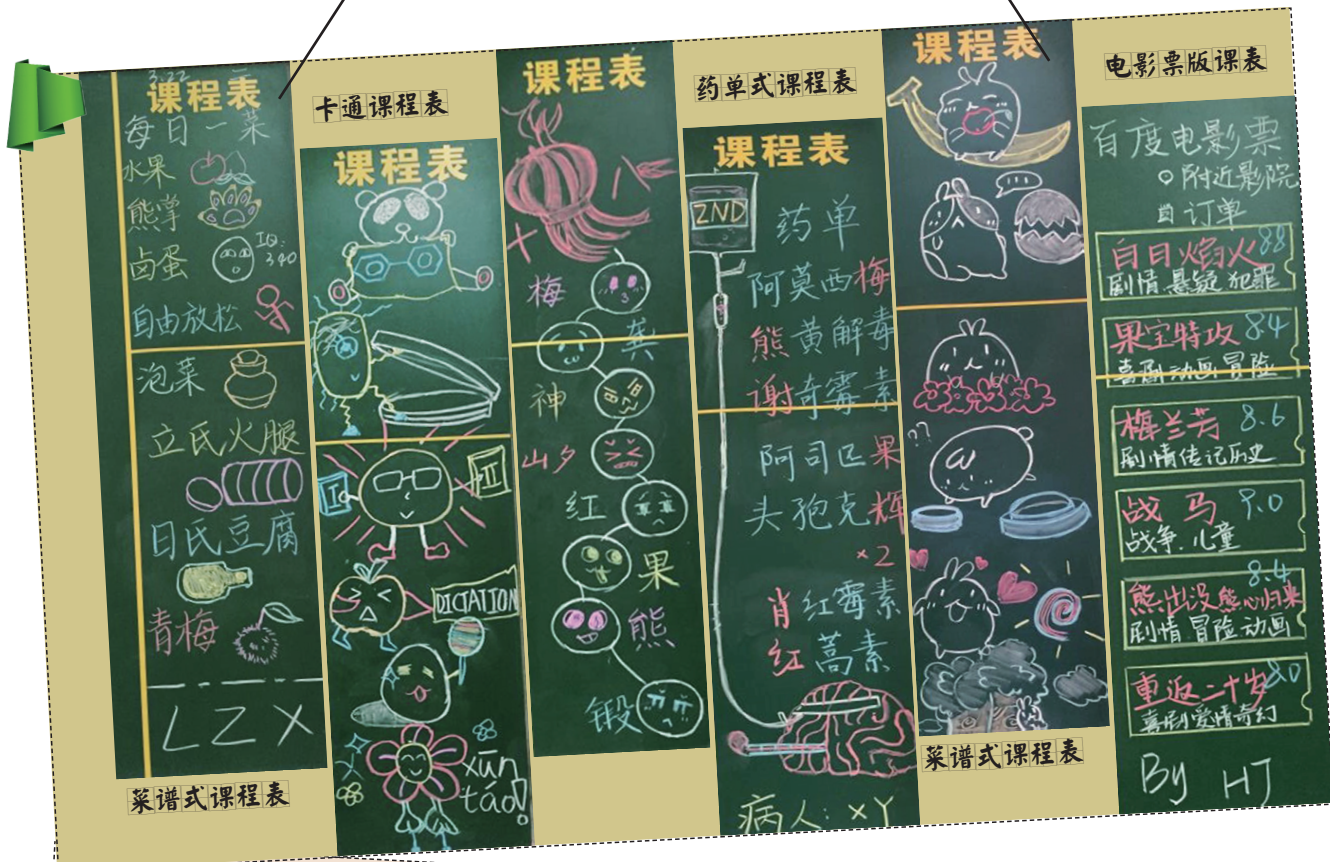 3.22 二
课程表
每日一菜
水果
熊掌
卤蛋
IQ:
340
自由放松
泡菜
立氏火腿
日氏豆腐
青梅
LZX
菜谱式课程表
卡通课程表
课程表
I
II
DICTATION
xūn
táo!
课程表
八
十
梅
龚
神
山夕
红
果
熊
锻
药单式课程表
课程表
2ND
药单
阿莫西梅
熊黄解毒
谢奇霉素
阿司匹果
头孢克辉
×2
肖红霉素
红蒿素
病人:×Y
课程表
??
菜谱式课程表
电影票版课表
百度电影票
附近影院
订单
白日焰火 88
剧情.悬疑.犯罪
果宝特攻 84
喜剧动画冒险
梅兰芳 8.6
剧情传记历史
战马 9.0
战争.儿童
8.4
熊出没熊心归来
剧情冒险动画
重返二十岁 80
喜剧爱情奇幻
By HJ